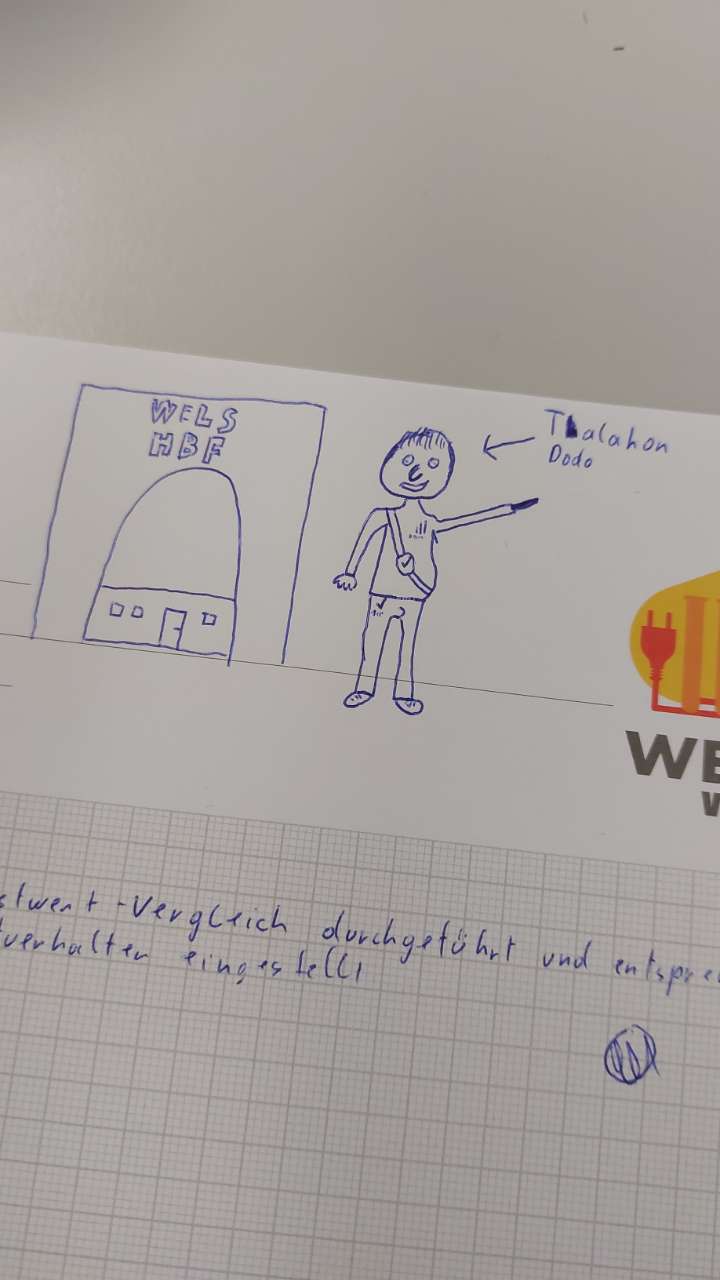 WELS
HBF
Thalahon
Dodo
WE
W
stwert-Vergleich durchgeführt und entspre
verhalten eingestellt